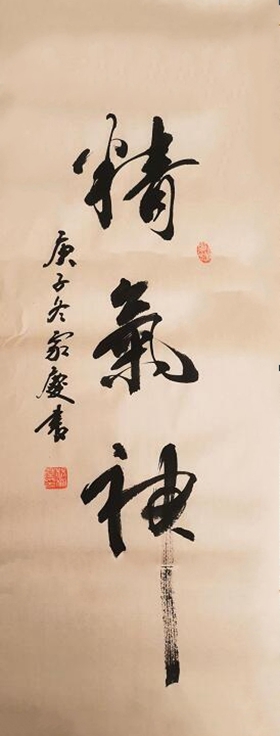 精氣神
庚子冬家慶書